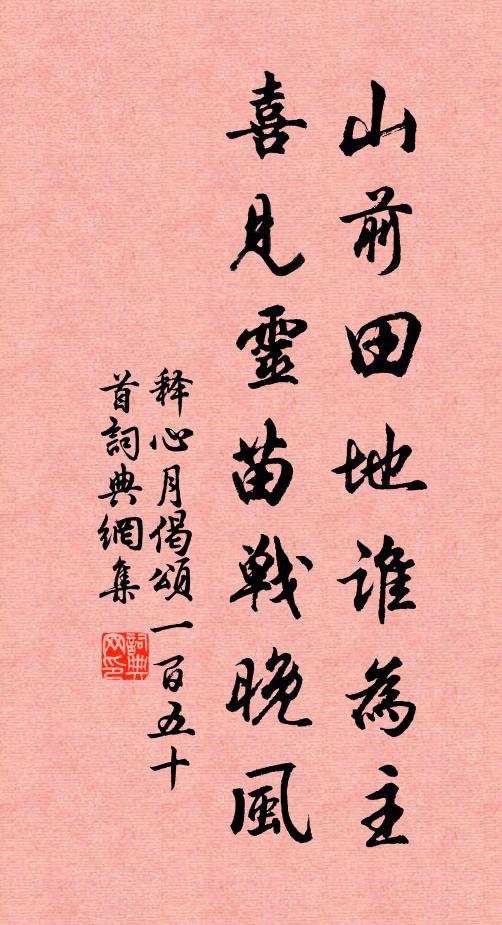 山前田地誰為主
喜見靈苗戰晚風
释心月偈頌一百五十
首詞典網集
詞典網印